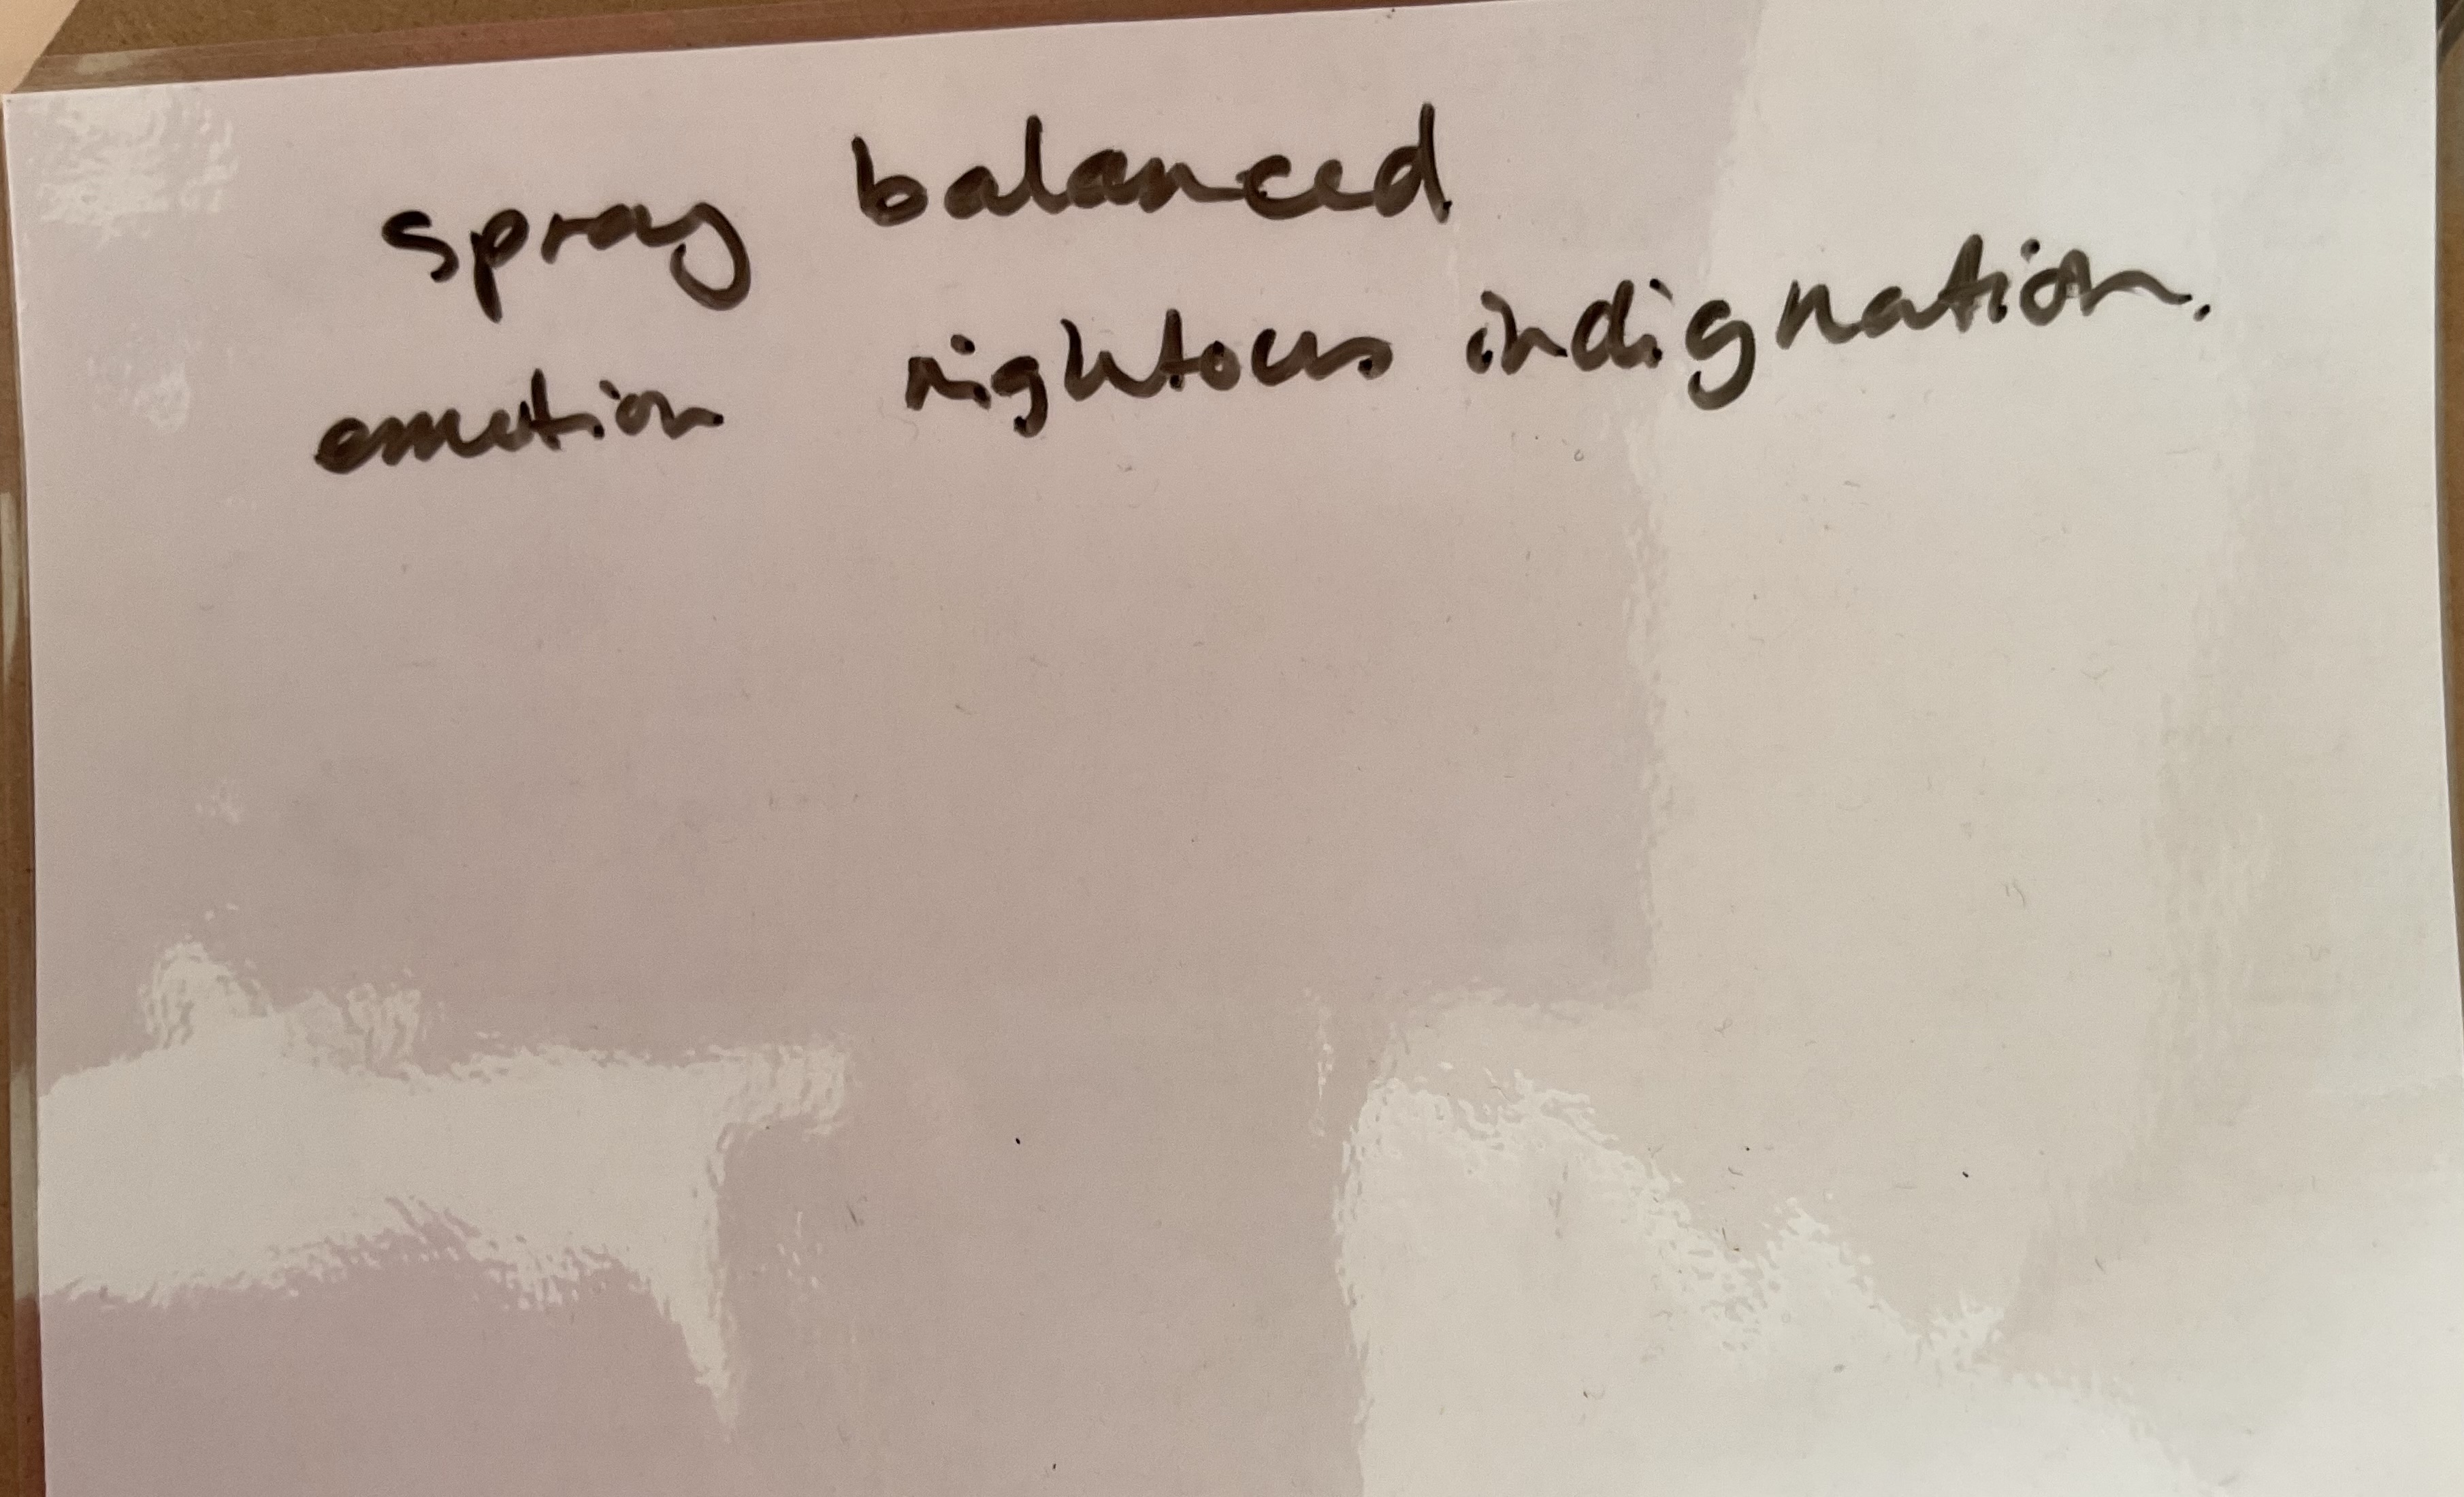 spray balanced
emotion rightous indignation.